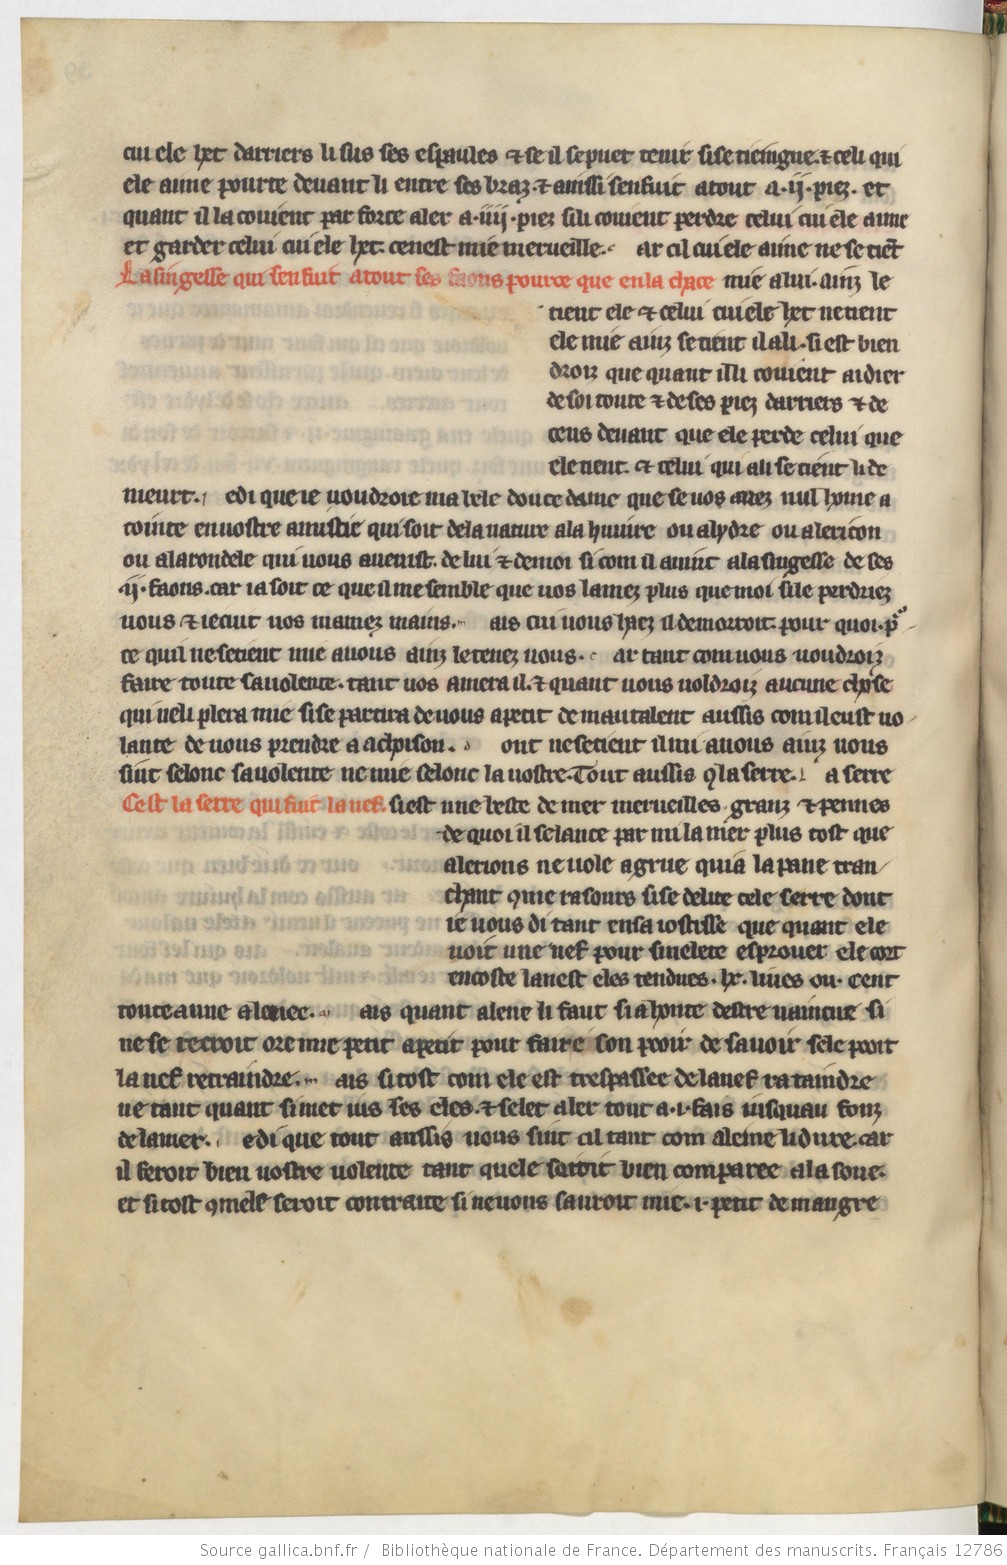 cui ele het darriers li sus ses espaules ⁊ se il se puet tenir si se tieingne. ⁊ celi qui
ele aime pourte deuant li entre ses braz. ⁊ ainssi senfuit atout a .ij. piez. et
quant il la couient par force aler a .iiij. piez sili couient perdre celui cui ele aime
et garder celui cui ele het. cenest mie merueille. ar cil cui ele aime ne se tiēt
La singesse qui senfuit atout ses faons pource que en la chace mie a lui. ainz le
tient ele ⁊ celui cui ele het ne tient
ele mie ainz se tient il a li. si est bien
droiz que quant illi couient aidier
de soi toute ⁊ de ses piez darriers ⁊ de
ceus deuant que ele perde celui que
ele tient. ⁊ celui qui a li se tient li de
meurt. e di que ie uoudroie ma bele douce dame que se uos auez nul home a
cointe en uostre amistie qui soit de la nature a la huiure ou a lydre ou a lericon
ou a la rondele qui uous auenist. de lui ⁊ de moi si com il auint a la singesse de ses
.ij. faons. car ia soit ce que il me semble que uos lamez plus que moi si le perdriez
uous ⁊ iecuit uos mainez mains. ais cui uous haez il demorroit. pour quoi. p
ce quil ne se tient mie a uous ainz le tenez uous. ar tant com uous uoudroiz
faire toute sa uolente. tant uos amera il. ⁊ quant uous uoldroiz aucune chose
qui ne li plera mie si se partira de uous a petit de mautalent aussis com il eust uo
lante de uous prendre a achoison. ont ne se tient il mi a uous ainz uous
siut selonc sa uolente ne mie selonc la uostre. Tout aussis q̄ la serre. a serre
Cest la serre qui suit la nef. si est une beste de mer merueilles granz ⁊ pennes
de quoi il se lance par mi la mer plus tost que
alerions ne uole a grue qui a la pane tran
chant q̄me rasours si se delite cele serre dont
ie uous di tant en sa iostisse que quant ele
uoit une nef pour sinelete esprouer ele cort
encoste la nest eles tendues .lx. liues ou .cent
toute a une alenee. ais quant alene li faut si a honte destre uaincue si
ne se recroit ore mie petit a petit pour faire son pooir de sauoir sele poit
la nef retraindre. ais si tost com ele est trespassee de la nef rataindre
ne tant quant si met ius ses eles. ⁊ selet aler tout a .i. fais iusquau fonz
de la mer. e di que tout aussis uous siut cil tant com aleine li dure. car
il feroit bien uostre uolente tant quele soit bien comparee a la soue.
et si tost q̄mele seroit contraite si ne uous sauroit mie .i. petit de maugre
Source gallica.bnf.fr / Bibliothèque nationale de France. Département des manuscrits. Français 12786